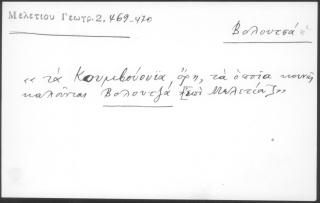 Μελετίου Γεωγρ. 2, 469-470
Βολουτσά
« τὰ Κουμβούνια, ὄρη, τὰ ὁποῖα κοινῶς
καλοῦνται Βολουτζά [ἐπὶ Μελετίου] »